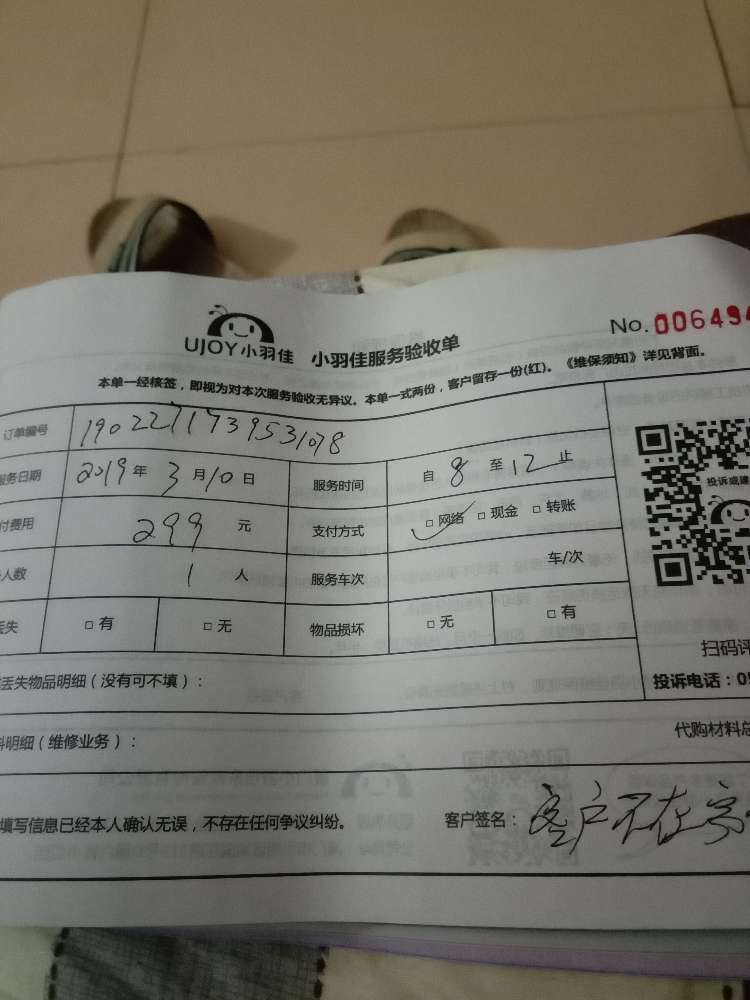 UJOY小羽佳 小羽佳服务验收单 No.00649
本单一经核签，即视为对本次服务验收无异议。本单一式两份，客户留存一份(红)。《维保须知》详见背面。
订单编号 1902271739531078
服务日期 2019 年 3 月 10 日 服务时间 自 8 至 12 止
付费用 299 元 支付方式 □ 网络 □ 现金 □ 转账
人数 1 人 服务车次 车/次
丢失 □ 有 □ 无 物品损坏 □ 无 □ 有
投诉或建
扫码评
丢失物品明细（没有可不填）：
投诉电话：05
料明细（维修业务）：
代购材料总
填写信息已经本人确认无误，不存在任何争议纠纷。 客户签名： 客户不在家